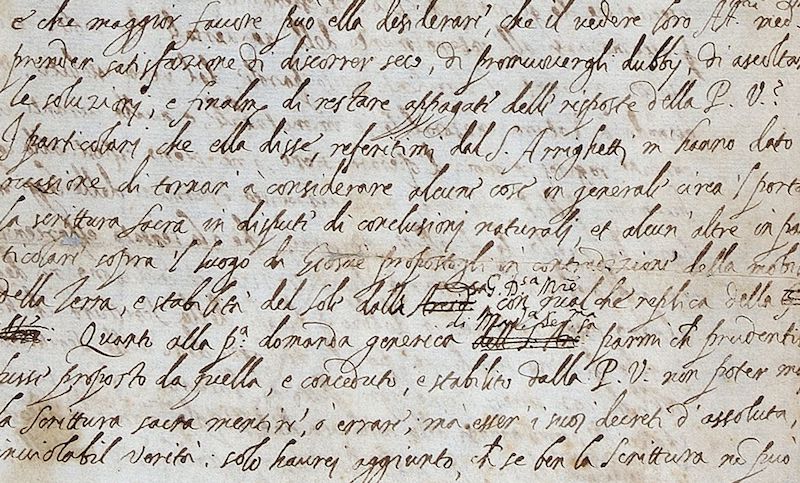 e che maggior favore può ella desiderare, che il vedere loro Alt.
prender satisfazione di discorrer seco, di promuovergli dubbij, di ascoltar
le soluzioni, e finalm. di restare appagati delle risposte della P. V.?
I particolari che ella disse, referitimi dal S. Arrighetti m hanno dato
occasione di tornar à considerare alcune cose in generale circa 'l portar
la scrittura sacra in dispute di conclusioni naturali, et alcun' altre in par
ticolare sopra 'l luogo di Giosuè propostogli in contradizione della mobil
della Terra, e stabilità del Sole dalla Gra. D.sa M.re
con qualche replica della
di Mad.a Ser.ma
Quanto alla p.a domanda generica parmi ch prudentis
fusse proposto da quella, e conceduto, e stabilito dalla P. V. non poter mai
la Scrittura sacra mentire, ò errare, mà esser' i suoi decreti d' assoluta,
inviolabil verità: solo haurei aggiunto, ch se ben la Scrittura nō può